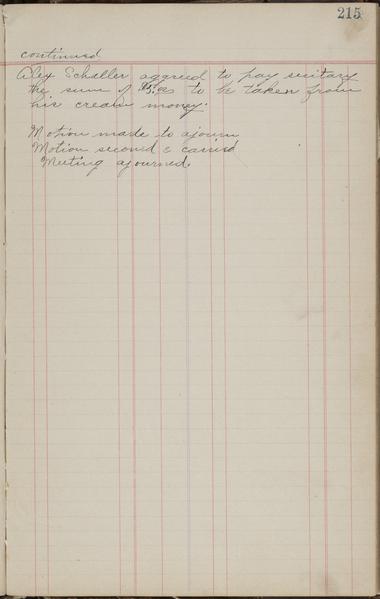 215
continued
Alex Schaller aggreed to pay seritary
the sum of to be taken from
his cream money.
Motion made to ajourn
Motion second & carried
Meeting ajourned.